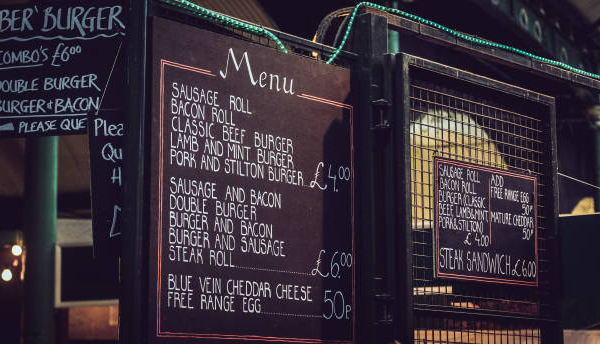 BER' BURGER
COMBO'S £6⁰⁰
DOUBLE BURGER
BURGER & BACON
PLEASE QUE
Plea
Qu
H
Menu
SAUSAGE ROLL
BACON ROLL
CLASSIC BEEF BURGER
LAMB AND MINT BURGER
PORK AND STILTON BURGER £4.00
SAUSAGE AND BACON
DOUBLE BURGER
BURGER AND BACON
BURGER AND SAUSAGE
STEAK ROLL £6.00
BLUE VEIN CHEDDAR CHEESE
FREE RANGE EGG 50p
SAUSAGE ROLL
BACON ROLL
BURGER(CLASSIC
BEEF, LAMB&MINT
PORK&STILTON)
£ 4.00
ADD
FREE RANGE EGG
50p
MATURE CHEDDAR
50p
STEAK SANDWICH £6.00